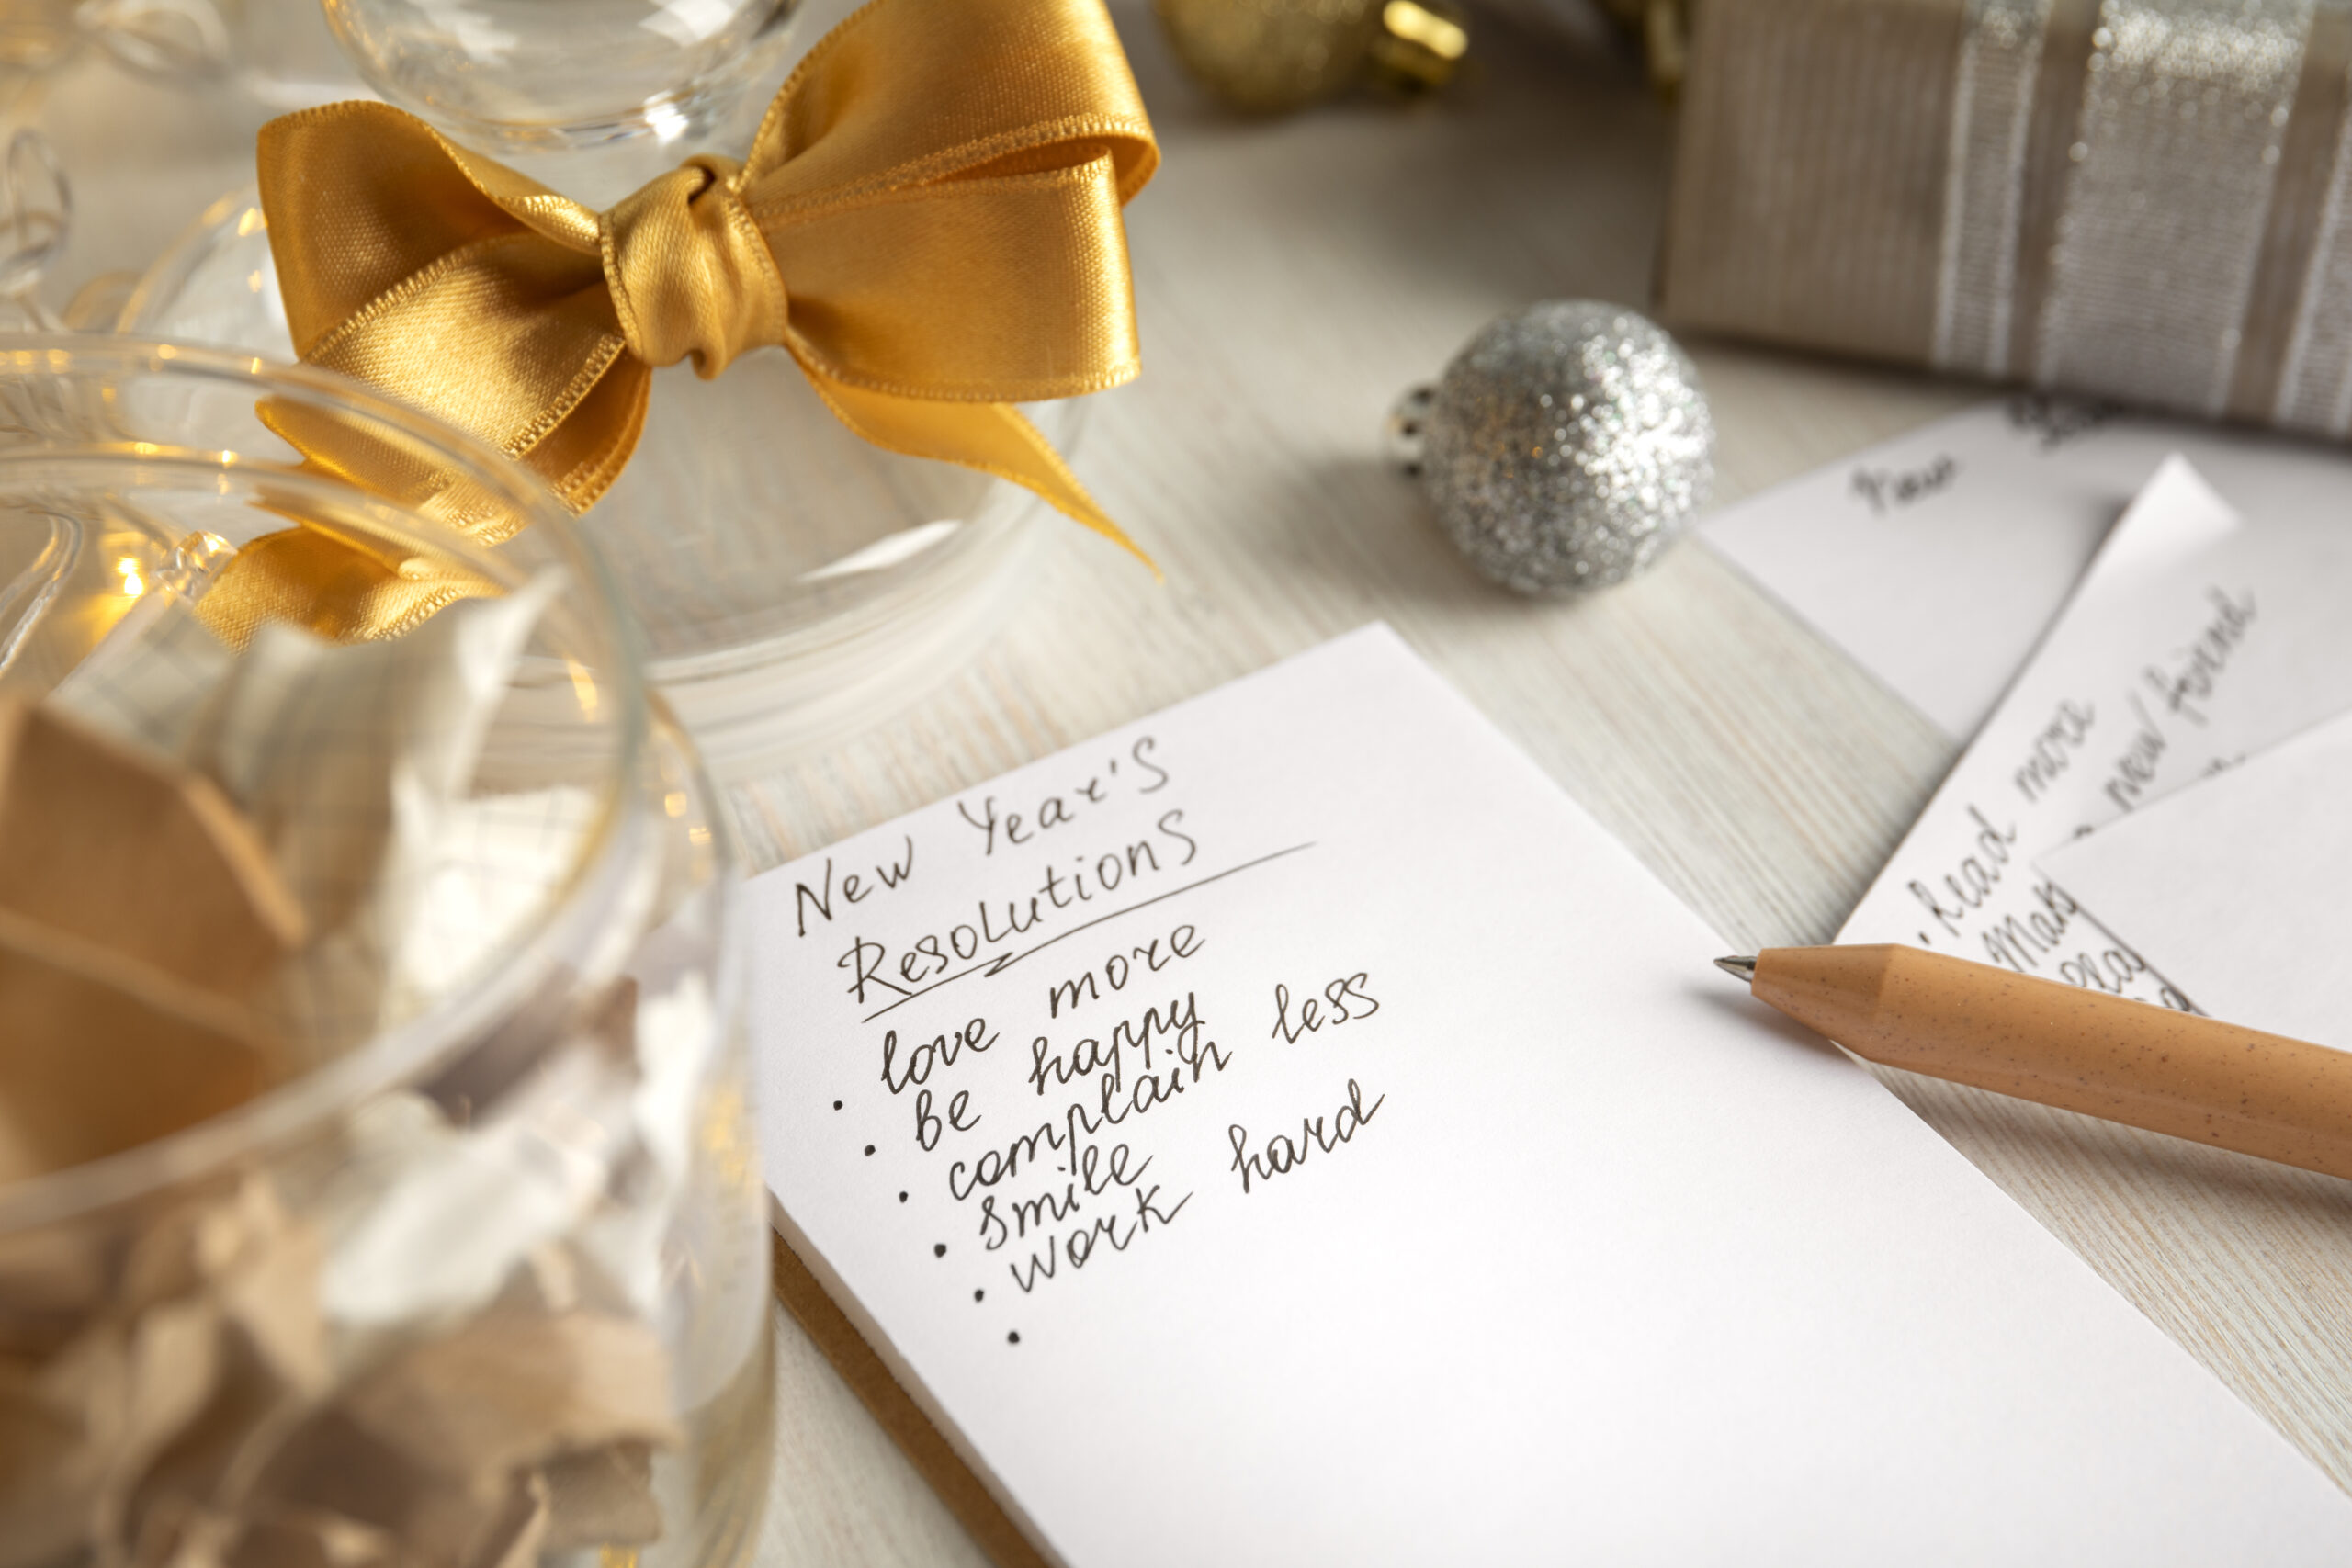 New Year's
Resolutions
• love more
• be happy
• complain less
• smile
• work hard
•
• Read more
new friend